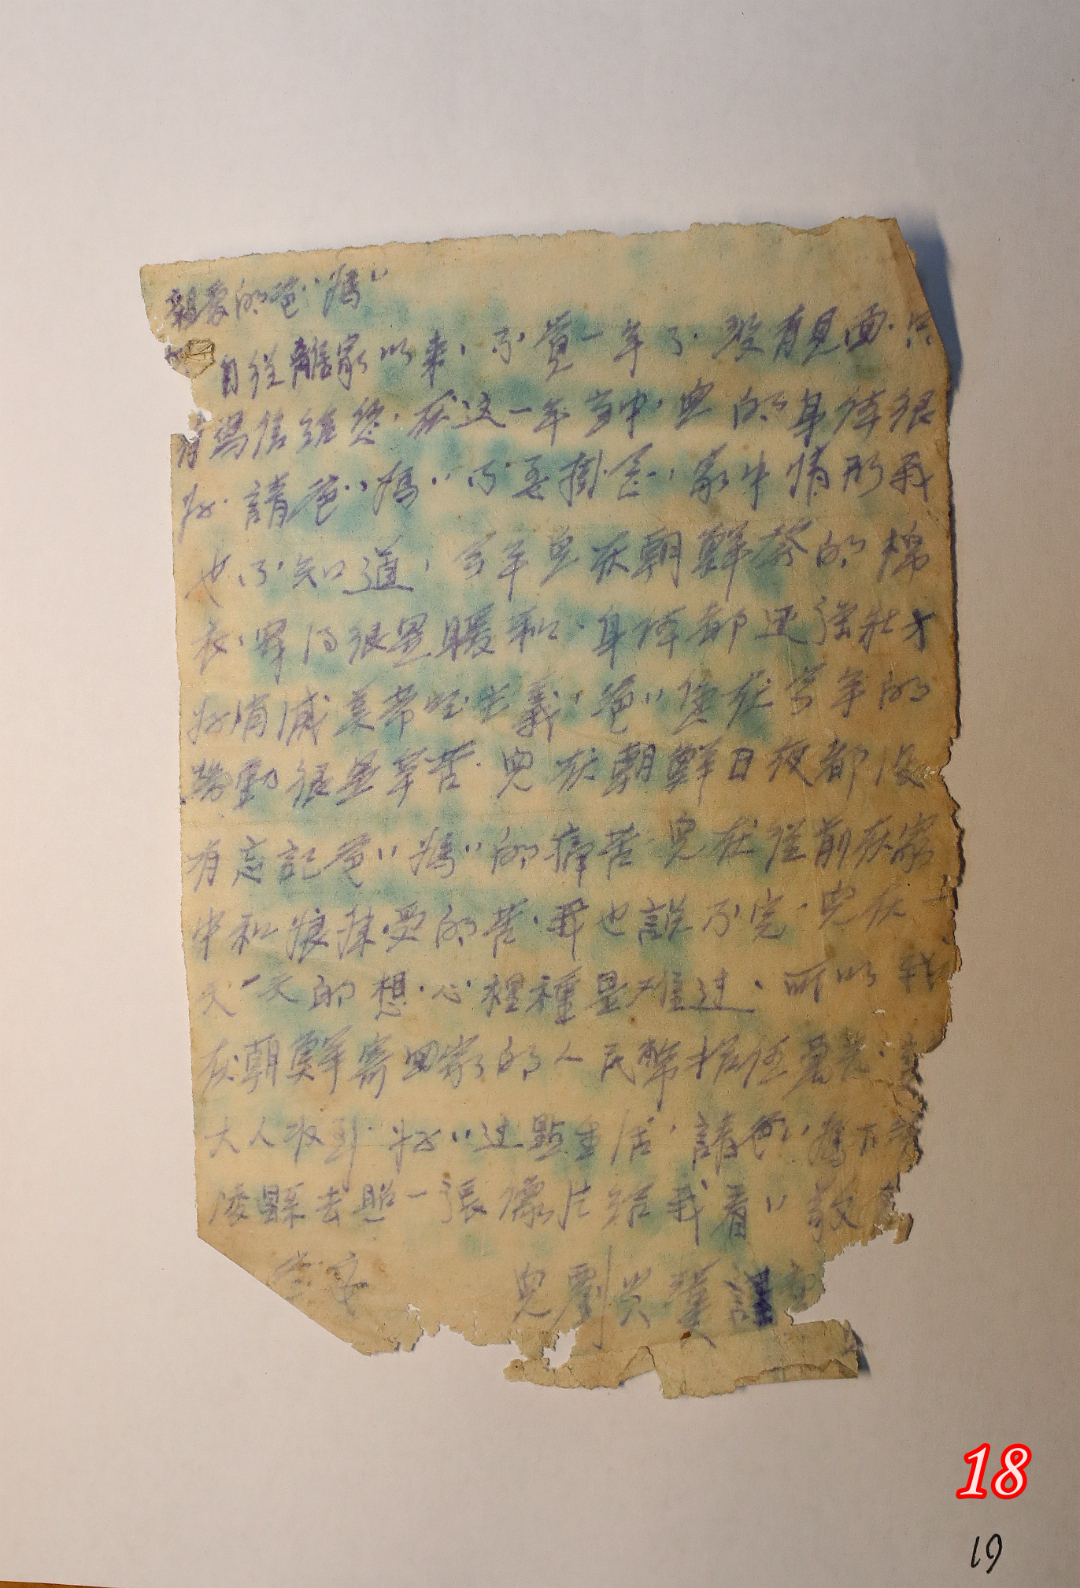 親愛的爸〃媽〃
自從離家以來，不覺一年了·沒有見面·只
有寫信給您·在这一年当中·兒的身体很
好·請爸〃媽〃不要掛念，家中情形我
也不知道，今年兒在朝鮮發的棉
衣·穿得很是暖和·身体都还强壯才
好消滅美帝國主義，爸〃您在今年的
勞動很是辛苦·兒在朝鮮日夜都没
有忘記爸〃媽〃的痛苦·兒在從前在家
中和妹受的苦·我也說不完·兒在
天一天的想·心裡種是难过、所以我
在朝鮮寄回家的人民幣
大人收到·好〃过點生活，請爸〃媽
凌縣去照一張像片給我看〃
兒劉兴漢
18
19